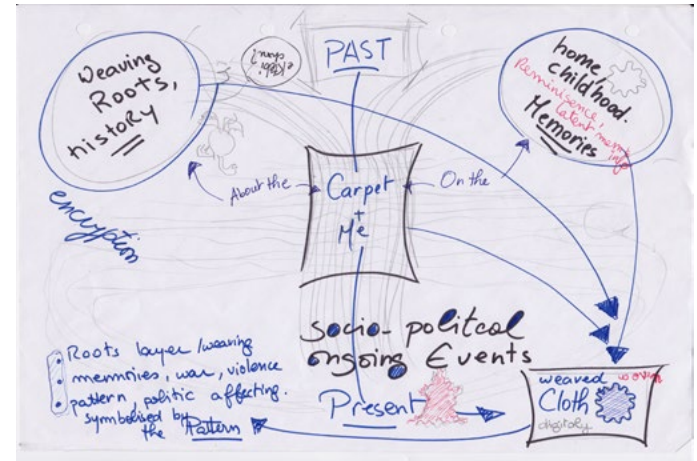 weaving
Roots,
history
PAST
home
childhood.
Reminisence,
Latent
Memories
info
About the
Carpet
+
Me
On the
encryption
socio-politcal
ongoing Events
Present
Roots layer/weaving
memories, war, violence
pattern, politic affecting.
symbolised by
the Pattern
weaved woven
Cloth
digitaly